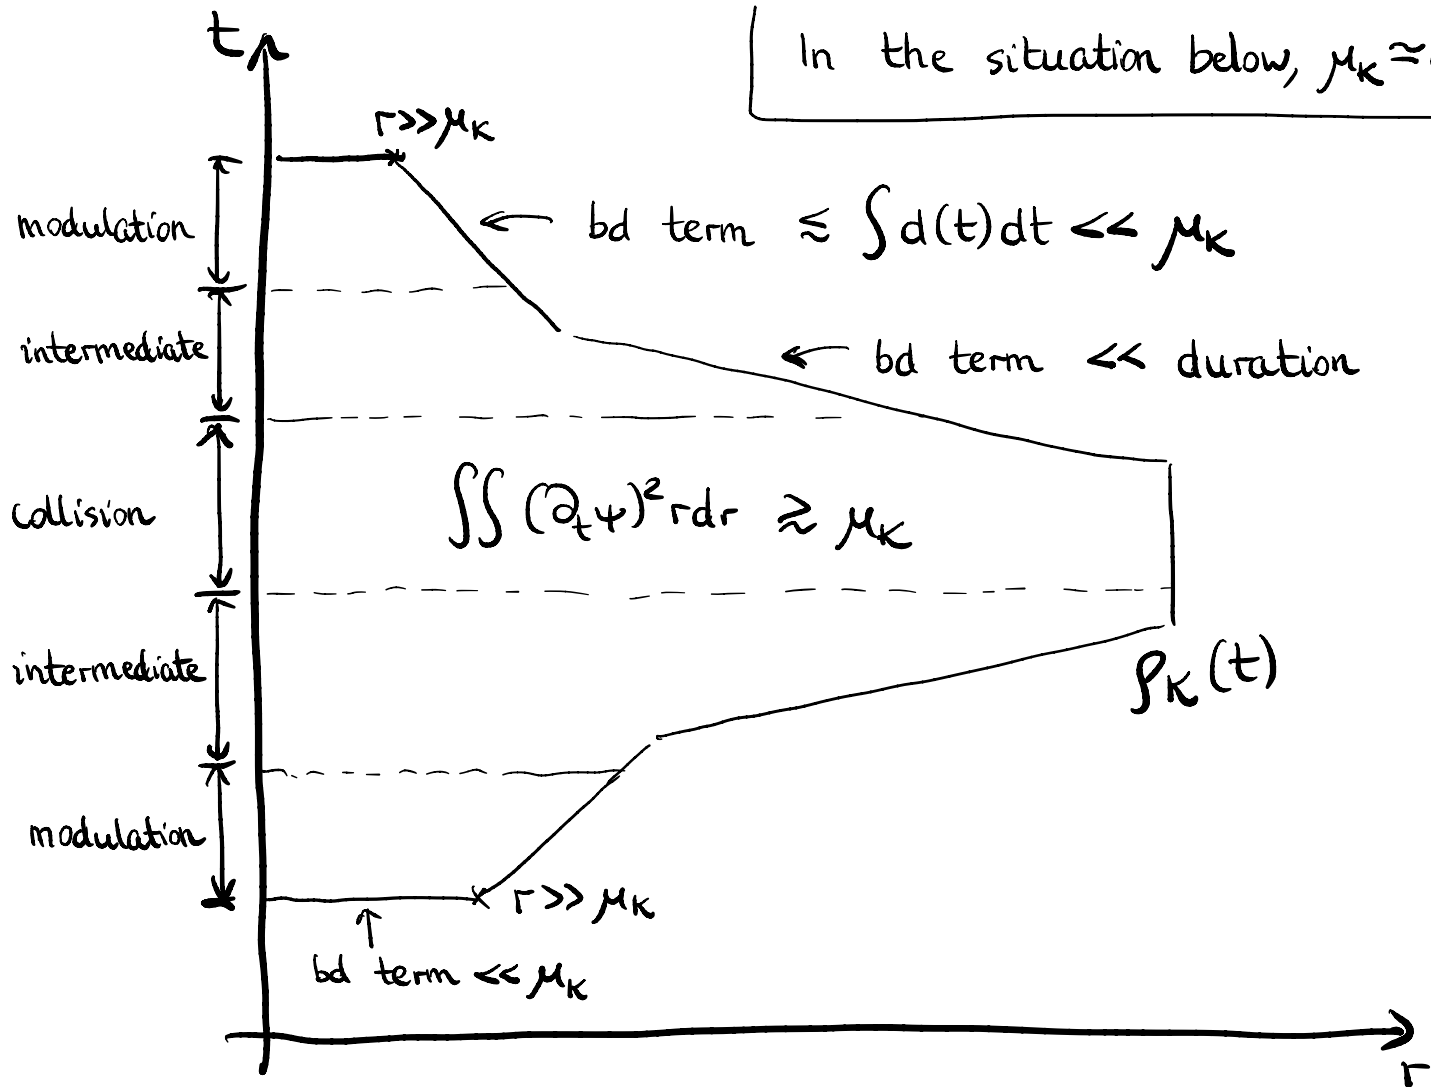 t
In the situation below, μ_K ≈
r>>μ_K
modulation
← bd term ≲ ∫d(t)dt << μ_K
intermediate
← bd term << duration
collision
∬ (∂_tψ)² rdr ≳ μ_K
intermediate
ρ_K(t)
modulation
r>>μ_K
bd term << μ_K
r